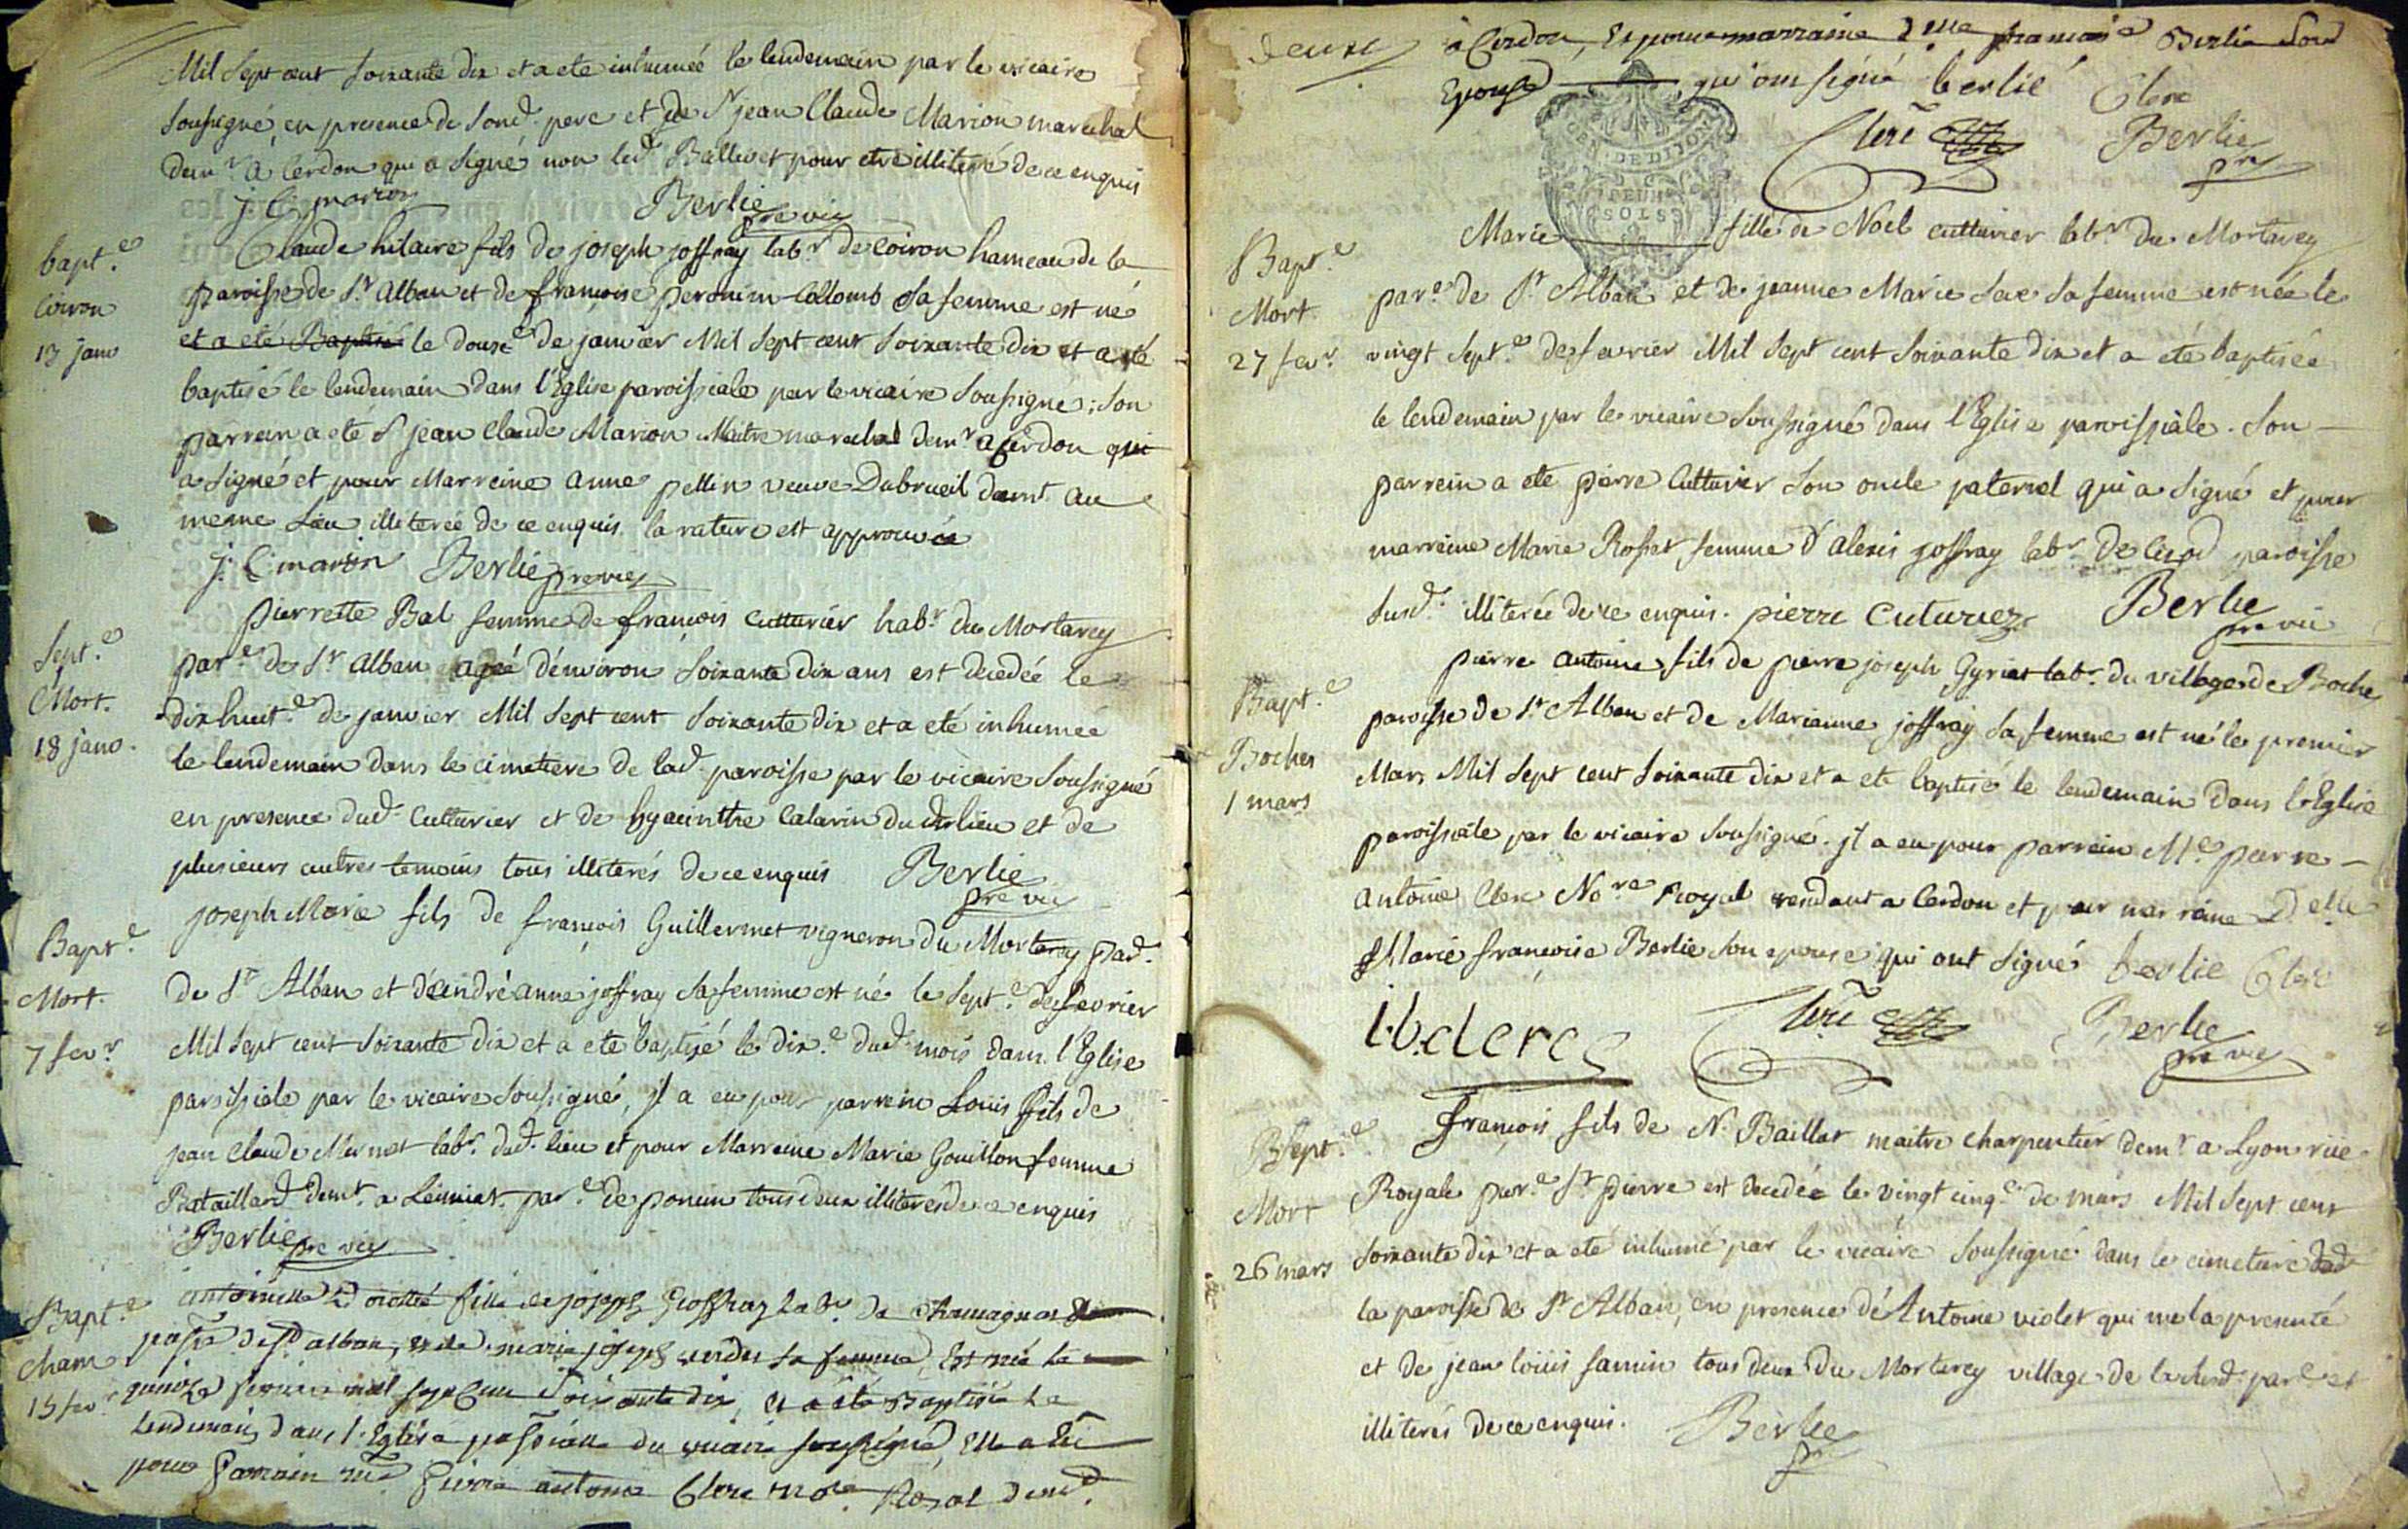 Mil Sept cent Soixante dix et a ete inhumée le lendemain par le vicaire
soussigné, en presence de Sond. pere et de Sr jean Claude Marion marechal
demr. à Cerdon qui a signé non led. Baillivet pour etre illiteré de ce enquis
J. C. marion Berlie pre vic
bapt.e
Coiron
13 janv
Claude hilaire fils de joseph joffray labr. de Coiron hameau de la
paroisse de St. Alban et de françoise peronim Collomb Sa femme est né
et a eté Baptisé le douze.e de janvier Mil Sept cent Soixante Dix et a eté
baptisé le lendemain dans l'Eglise paroissiale par le vicaire Soussigné ; Son
parrein a eté Sr jean Claude Marion Maitre marechal demr. a Cerdon qui
a signé et pour Marreine anne pellin veuve Dubrueil demt. au
meme Lieu illiterée de ce enquis. la rature est approuvée
J. C marion Berlie pre vic
Sept.e
Mort.
18 janv.
pierrette Bal femme de françois Cutturier habr. du Mortarey
par.e de St. Alban agée d'environ Soixante dix ans est decedée le
dix huit.e de janvier Mil Sept cent Soixante dix et a eté inhumée
le lendemain dans le cimetiere de lad. paroisse par le vicaire Soussigné
en presence dud. Cutturier et de hyacinthe Calarin dud. lieu et de
plusieurs autres temoins tous illiterés de ce enquis Berlie
pre vic
Bapt.e
Mort.
7 fevr.
joseph Marie fils de françois Guillermet vigneron du Mortarey pad.
de St. Alban et d'andréanne joffray Sa femme est né le Sept.e de fevrier
Mil Sept cent Soixante Dix et a eté baptisé le dix.e dud. mois dans l'Eglise
paroissiale par le vicaire Soussigné, il a eu pour parrein Louis fils de
jean Claude Mernet labr. dud. lieu et pour Marreine Marie Gouillon femme
Bataillard demt. a Leimiat par.e de poncin tous deux illiterés de ce enquis
Berlie pre vic
Bapt.e
Cham
15 fevr
antoinette Dorothé fille de joseph Geoffray labr. de Chamagnat
passe de St alban, et de marie joseph Sa femme, Est née le
quinze fevrier mil sept cent Soixante dix, et a été Baptisée Le
lendemain dans l'Eglise passialle du vicaire soussigné, Elle a Eu
pour Parrain me. Pierre antoine Clerc nore. Royal demt.
deuxe
à Cerdon, Et pour marraine Dlle françoise Berlie Son
Epouse qu'ont signé berlie Clerc
GEN. DE DIJON
DEUX
SOLS
Clerc Berlie
pre
Bapt.e
Mort.
27 fevr.
Marie fille de Noel Cutturier labr. du Mortarey
par.e de St. Alban et de jeanne Marie Seve Sa femme est née le
vingt Sept.e de fevrier Mil Sept cent Soixante dix et a eté baptisée
le lendemain par le vicaire Soussigné dans l'Eglise paroissiale. Son
parrein a eté pierre Cutturier Son oncle paternel qui a signé et pour
marreine Marie Rosset femme d'alexis joffray labr. de paroisse
Susd. illiterée de ce enquis. pierre Cuturiez Berlie
pre vic
Bapt.e
Boches
1 mars
pierre Antoine fils de pierre joseph Gyriat labr. du village de Boche
paroisse de St. Alban et de Marianne joffray Sa femme est né le premier
Mars Mil Sept cent Soixante dix et a eté baptisé le lendemain dans l'Eglise
paroissiale par le vicaire Soussigné. il a eu pour parrein Me. pierre
Antoine Clerc No.re Royal rendant a Cerdon et pour marreine Delle
Marie françoise Berlie Son epouse qui ont signé berlie Clerc
clerc Clerc Berlie
pre vic
Sept.e
Mort
26 mars
françois fils de N. Baillat maitre charpentier demr. a Lyon rue
Royale par.e St. pierre est decedée le vingt cinq.e de mars Mil Sept cent
Soixante dix et a eté inhumé par le vicaire Soussigné dans le cimetiere
la paroisse de St. Alban, en presence de Antoine violet qui me la presenté
et de jean loüis famin tous deux du Mortarey village de lad. par.e et
illiterés de ce enquis. Berlie
pre